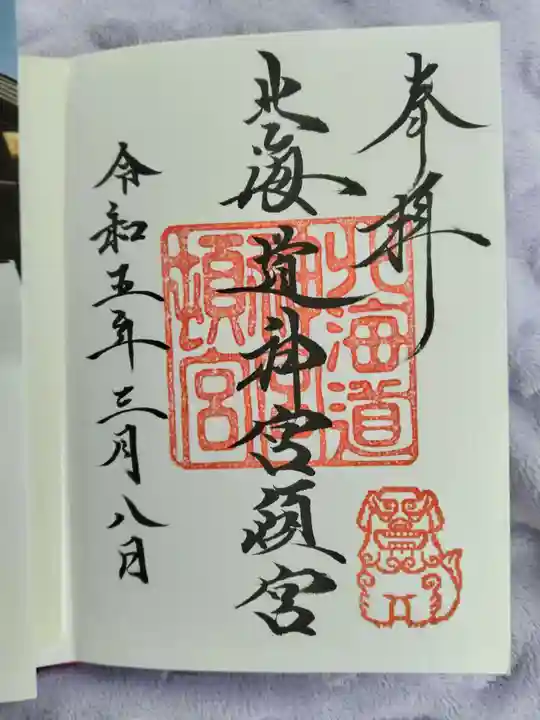 奉拝
北海道神宮頓宮
北海道
神宮
頓宮
令和五年三月八日